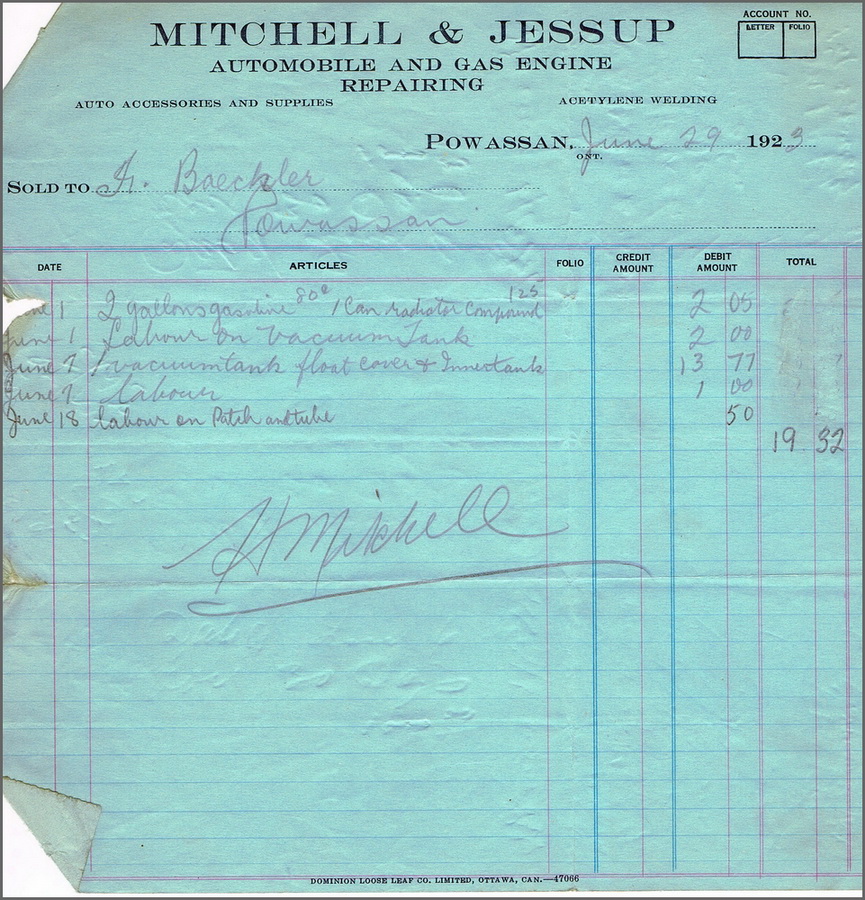 MITCHELL & JESSUP
ACCOUNT NO.
LETTER FOLIO
AUTOMOBILE AND GAS ENGINE
REPAIRING
AUTO ACCESSORIES AND SUPPLIES ACETYLENE WELDING
POWASSAN, ONT. June 29 1923
SOLD TO Boeckler
Powassan
DATE ARTICLES FOLIO CREDIT AMOUNT DEBIT AMOUNT TOTAL
1 2 gallons gasoline 80¢ 1 Can radiator Compound 125 2 05
June 1 Labour on Vacuum Tank 2 00
June 7 1 vacuum tank float cover & Inner tank 13 77
June 7 labour 1 00
June 18 labour on Patch and tube 50
19 32
H Mitchell
DOMINION LOOSE LEAF CO. LIMITED, OTTAWA, CAN.—47066